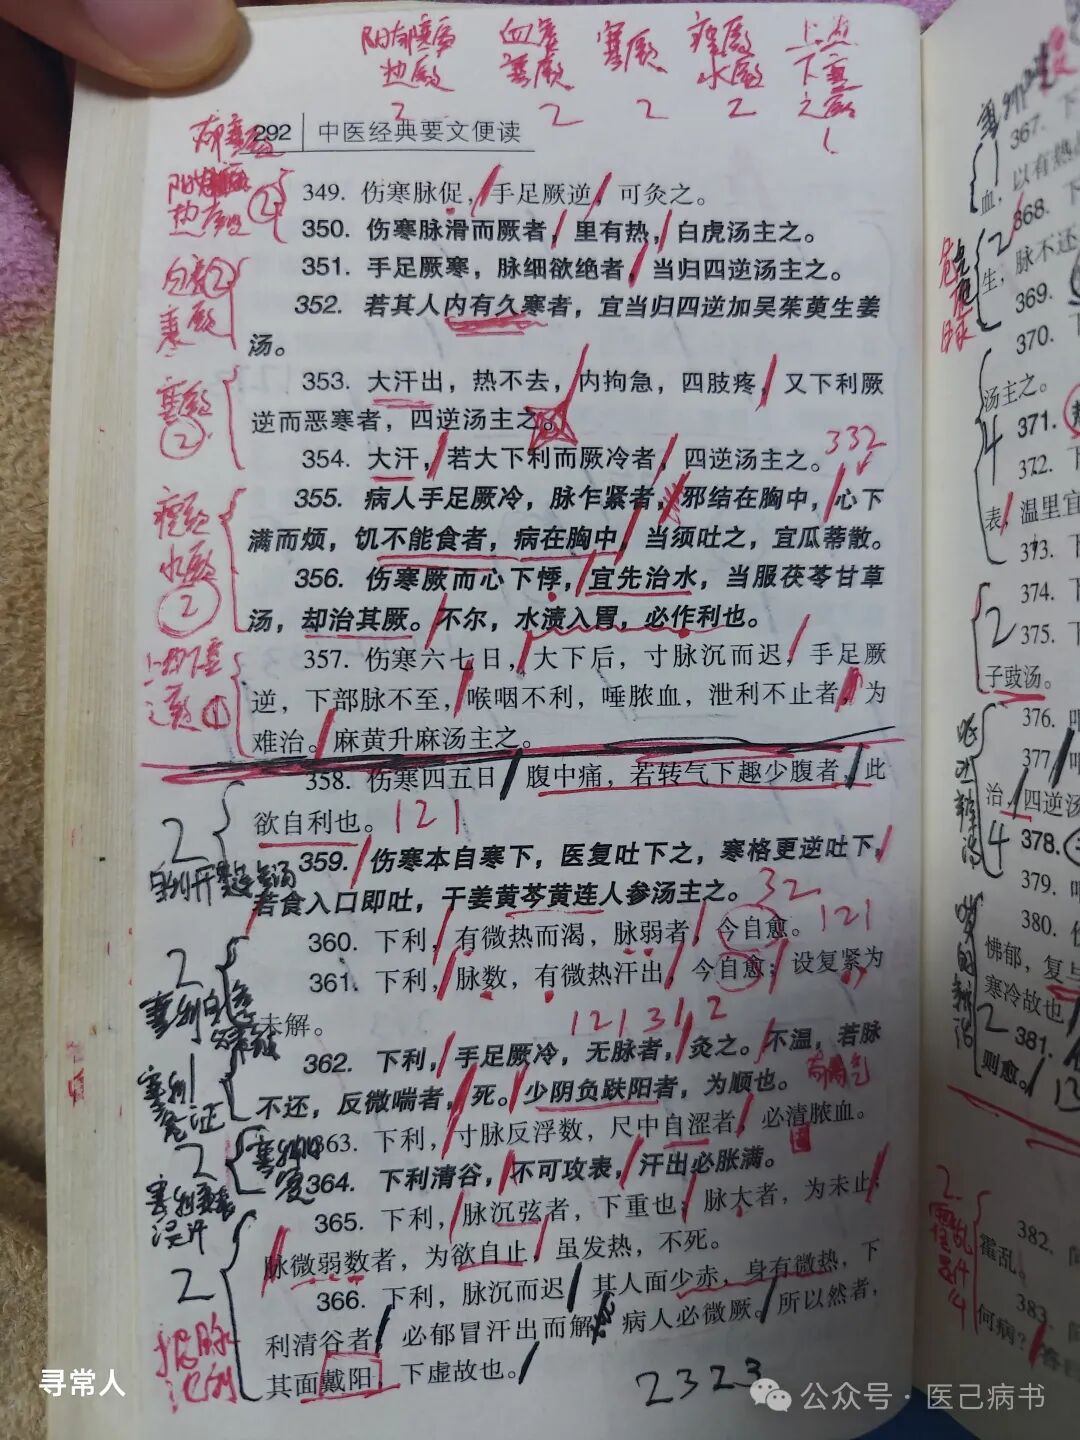 阳郁寒厥 血虚 寒厥 痰厥 上热
热厥 寒厥 水厥 下寒
2 2 2 2 之厥
1
292 中医经典要文便读
349. 伤寒脉促,手足厥逆,可灸之。
350. 伤寒脉滑而厥者,里有热,白虎汤主之。
351. 手足厥寒,脉细欲绝者,当归四逆汤主之。
352. 若其人内有久寒者,宜当归四逆加吴茱萸生姜
汤。
353. 大汗出,热不去,内拘急,四肢疼,又下利厥
逆而恶寒者,四逆汤主之。
332
354. 大汗,若大下利而厥冷者,四逆汤主之。
355. 病人手足厥冷,脉乍紧者,邪结在胸中,心下
满而烦,饥不能食者,病在胸中,当须吐之,宜瓜蒂散。
356. 伤寒厥而心下悸,宜先治水,当服茯苓甘草
汤,却治其厥。不尔,水渍入胃,必作利也。
357. 伤寒六七日,大下后,寸脉沉而迟,手足厥
逆,下部脉不至,喉咽不利,唾脓血,泄利不止者,为
难治。麻黄升麻汤主之。
358. 伤寒四五日,腹中痛,若转气下趣少腹者,此
欲自利也。 121
359. 伤寒本自寒下,医复吐下之,寒格更逆吐下,
若食入口即吐,干姜黄芩黄连人参汤主之。 32
360. 下利,有微热而渴,脉弱者,今自愈。 121
361. 下利,脉数,有微热汗出,今自愈;设复紧为
未解。 121312
362. 下利,手足厥冷,无脉者,灸之。不温,若脉
不还,反微喘者,死。少阴负趺阳者,为顺也。
363. 下利,寸脉反浮数,尺中自涩者,必清脓血。
364. 下利清谷,不可攻表,汗出必胀满。
365. 下利,脉沉弦者,下重也;脉大者,为未止;
脉微弱数者,为欲自止,虽发热,不死。
366. 下利,脉沉而迟,其人面少赤,身有微热,下
利清谷者,必郁冒汗出而解,病人必微厥。所以然者,
其面戴阳,下虚故也。
2323
寒厥
②
痰厥
水厥
2
2
2
2
2
367. 下
以有热
血,
368. 下
生,脉不还
369.
370.
汤主之。
371.
4
372. 下
表,温里宜
373. 下
374. 下
2
375. 下
子豉汤。
376. 呕
377. 呕
治,四逆汤
378.
4
379. 呕
380. 伤
怫郁,复与
寒冷故也
2
381.
则愈。
2
382. 问
霍乱。
383. 问
何病?答曰
14
寻常人
公众号·医己病书